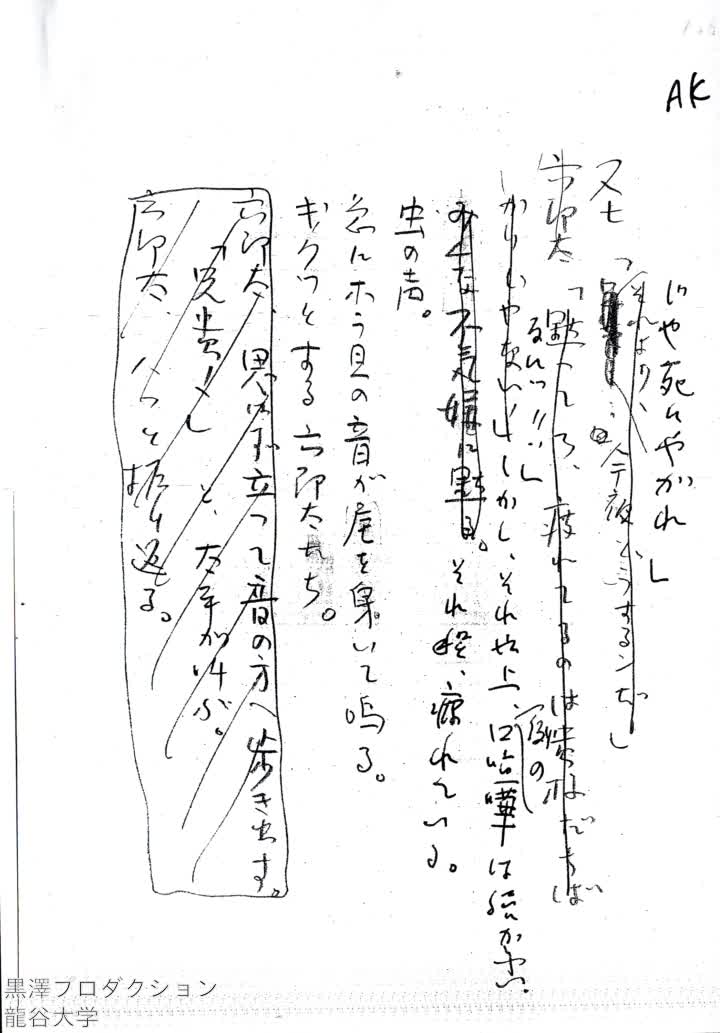 AK
じや死にやがれ」
又七「それより、…今夜どうするンだ」
六郎太「黙つてろ、疲れてるのは貴様だけぢ
やない!!」しかし、それ以上、例の口喧嘩は続かない。
みんな不気嫌に黙る。それ程、疲れている。
虫の声。
急にホラ貝の音が尾を曳いて鳴る。
ギクツとする六郎太たち。
六郎太、思はず立つて音の方へ歩き出す。
「兄貴!」と、太平が叫ぶ。
六郎太、ハツと振り返る。
黒澤プロダクション
龍谷大学